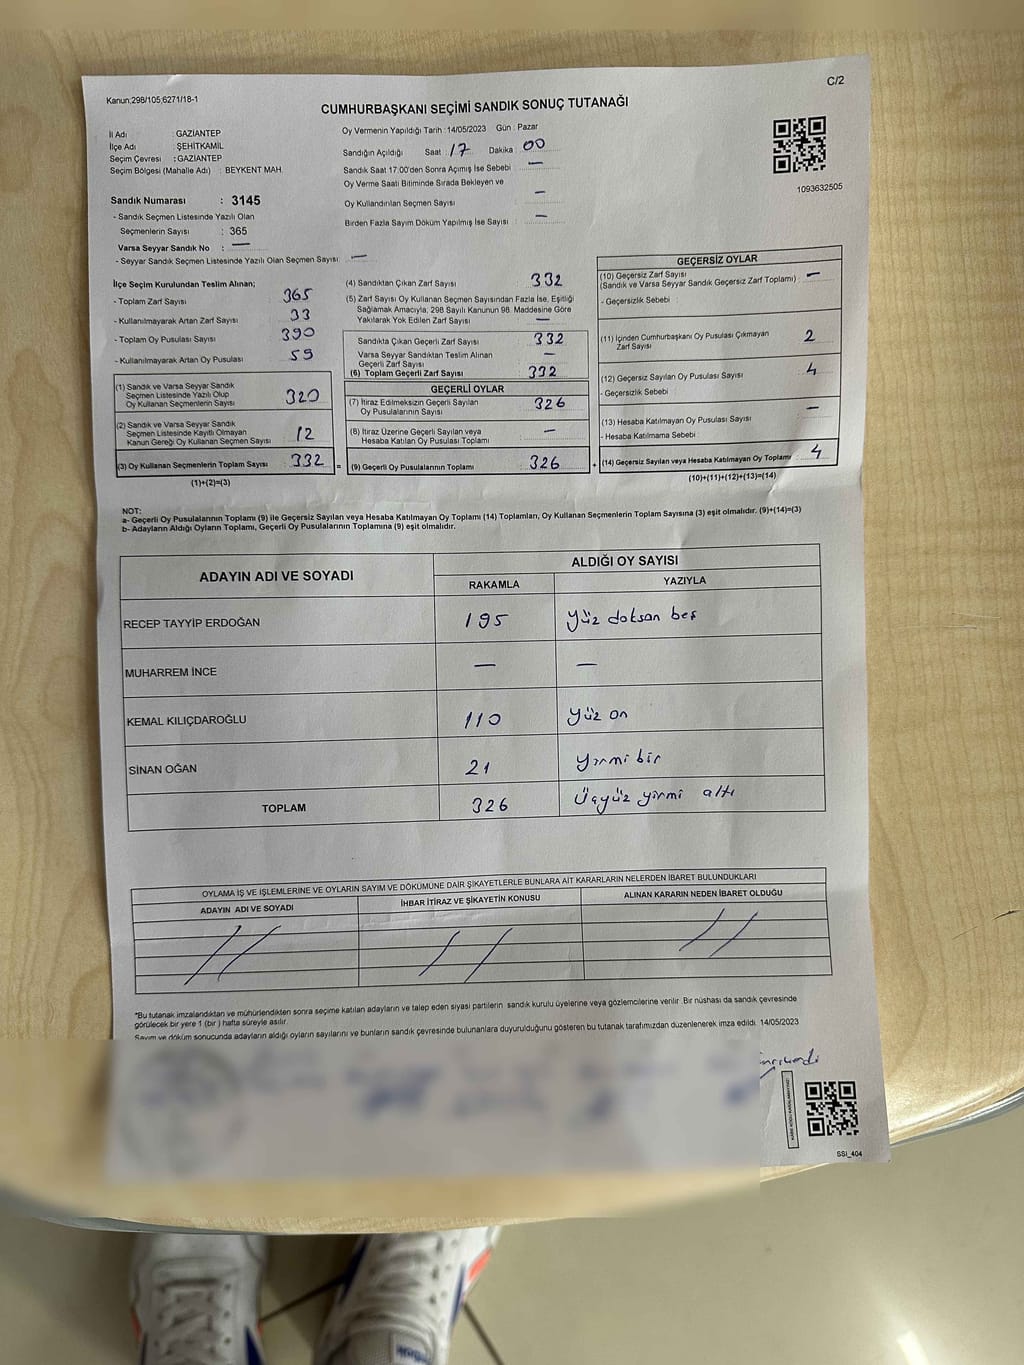 C/2
Kanun;298/105,6271/18-1
CUMHURBAŞKANI SEÇİMİ SANDIK SONUÇ TUTANAĞI
İl Adı : GAZİANTEP
İlçe Adı : ŞEHİTKAMİL
Seçim Çevresi : GAZİANTEP
Seçim Bölgesi (Mahalle Adı) : BEYKENT MAH.
Oy Vermenin Yapıldığı Tarih : 14/05/2023 Gün : Pazar
Sandığın Açıldığı Saat : 17 Dakika : 00
Sandık Saat 17.00'den Sonra Açımış İse Sebebi : —
Oy Verme Saati Bitiminde Sırada Bekleyen ve
Oy Kullandırılan Seçmen Sayısı : —
Birden Fazla Sayım Döküm Yapılmış İse Sayısı : —
1093632505
Sandık Numarası : 3145
- Sandık Seçmen Listesinde Yazılı Olan
Seçmenlerin Sayısı : 365
Varsa Seyyar Sandık No : —
- Seyyar Sandık Seçmen Listesinde Yazılı Olan Seçmen Sayısı: —
İlçe Seçim Kurulundan Teslim Alınan;
- Toplam Zarf Sayısı : 365
- Kullanılmayarak Artan Zarf Sayısı : 33
- Toplam Oy Pusulası Sayısı : 390
- Kullanılmayarak Artan Oy Pusulası : 59
(1) Sandık ve Varsa Seyyar Sandık
Seçmen Listesinde Yazılı Olup
Oy Kullanan Seçmenlerin Sayısı : 320
(2) Sandık ve Varsa Seyyar Sandık
Seçmen Listesinde Kayıtlı Olmayan
Kanun Gereği Oy Kullanan Seçmen Sayısı : 12
(3) Oy Kullanan Seçmenlerin Toplam Sayısı : 332 =
(1)+(2)=(3)
(4) Sandıktan Çıkan Zarf Sayısı : 332
(5) Zarf Sayısı Oy Kullanan Seçmen Sayısından Fazla İse, Eşitliği
Sağlamak Amacıyla, 298 Sayılı Kanunun 98. Maddesine Göre
Yakılarak Yok Edilen Zarf Sayısı : —
Sandıkta Çıkan Geçerli Zarf Sayısı : 332
Varsa Seyyar Sandıktan Teslim Alınan
Geçerli Zarf Sayısı : —
(6) Toplam Geçerli Zarf Sayısı : 332
GEÇERLİ OYLAR
(7) İtiraz Edilmeksizin Geçerli Sayılan
Oy Pusulalarının Sayısı : 326
(8) İtiraz Üzerine Geçerli Sayılan veya
Hesaba Katılan Oy Pusulası Toplamı : —
(9) Geçerli Oy Pusulalarının Toplamı : 326 +
GEÇERSİZ OYLAR
(10) Geçersiz Zarf Sayısı
(Sandık ve Varsa Seyyar Sandık Geçersiz Zarf Toplamı) : —
- Geçersizlik Sebebi :
(11) İçinden Cumhurbaşkanı Oy Pusulası Çıkmayan
Zarf Sayısı : 2
(12) Geçersiz Sayılan Oy Pusulası Sayısı : 4
- Geçersizlik Sebebi :
(13) Hesaba Katılmayan Oy Pusulası Sayısı : —
- Hesaba Katılmama Sebebi :
(14) Geçersiz Sayılan veya Hesaba Katılmayan Oy Toplamı : 4
(10)+(11)+(12)+(13)=(14)
NOT:
a- Geçerli Oy Pusulalarının Toplamı (9) ile Geçersiz Sayılan veya Hesaba Katılmayan Oy Toplamı (14) Toplamları, Oy Kullanan Seçmenlerin Toplam Sayısına (3) eşit olmalıdır. (9)+(14)=(3)
b- Adayların Aldığı Oyların Toplamı, Geçerli Oy Pusulalarının Toplamına (9) eşit olmalıdır.
ADAYIN ADI VE SOYADI ALDIĞI OY SAYISI
RAKAMLA YAZIYLA
RECEP TAYYİP ERDOĞAN 195 yüz doksan beş
MUHARREM İNCE — —
KEMAL KILIÇDAROĞLU 110 yüz on
SİNAN OĞAN 21 yirmi bir
TOPLAM 326 Üçyüz yirmi altı
OYLAMA İŞ VE İŞLEMLERİNE VE OYLARIN SAYIM VE DÖKÜMÜNE DAİR ŞİKAYETLERLE BUNLARA AİT KARARLARIN NELERDEN İBARET BULUNDUKLARI
ADAYIN ADI VE SOYADI İHBAR İTİRAZ VE ŞİKAYETİN KONUSU ALINAN KARARIN NEDEN İBARET OLDUĞU
*Bu tutanak imzalandıktan ve mühürlendikten sonra seçime katılan adayların ve talep eden siyasi partilerin sandık kurulu üyelerine veya gözlemcilerine verilir. Bir nüshası da sandık çevresinde
görülecek bir yere 1 (bir) hafta süreyle asılır.
Sayım ve döküm sonucunda adayların aldığı oyların sayılarını ve bunların sandık çevresinde bulunanlara duyurulduğunu gösteren bu tutanak tarafımızdan düzenlenerek imza edildi. 14/05/2023
SSİ_404